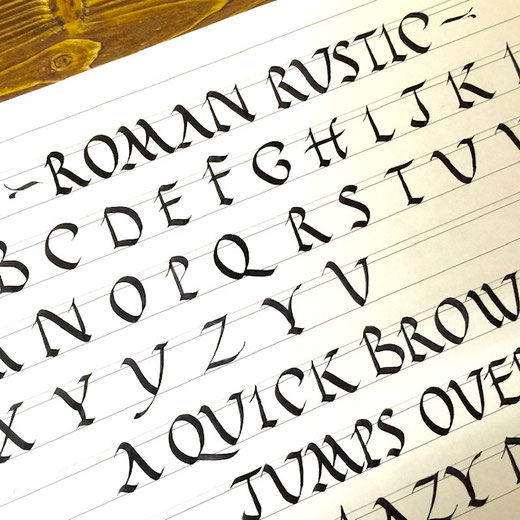 ~ROMAN RUSTIC~
B C D E F G H I J K
N O P Q R S T U V
X Y Y Z Y V
A QUICK BROW
JUMPS OVE
AZY